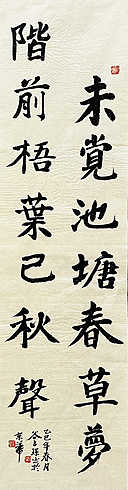 未覚池塘春草夢
階前梧葉已秋聲
乙巳年春月